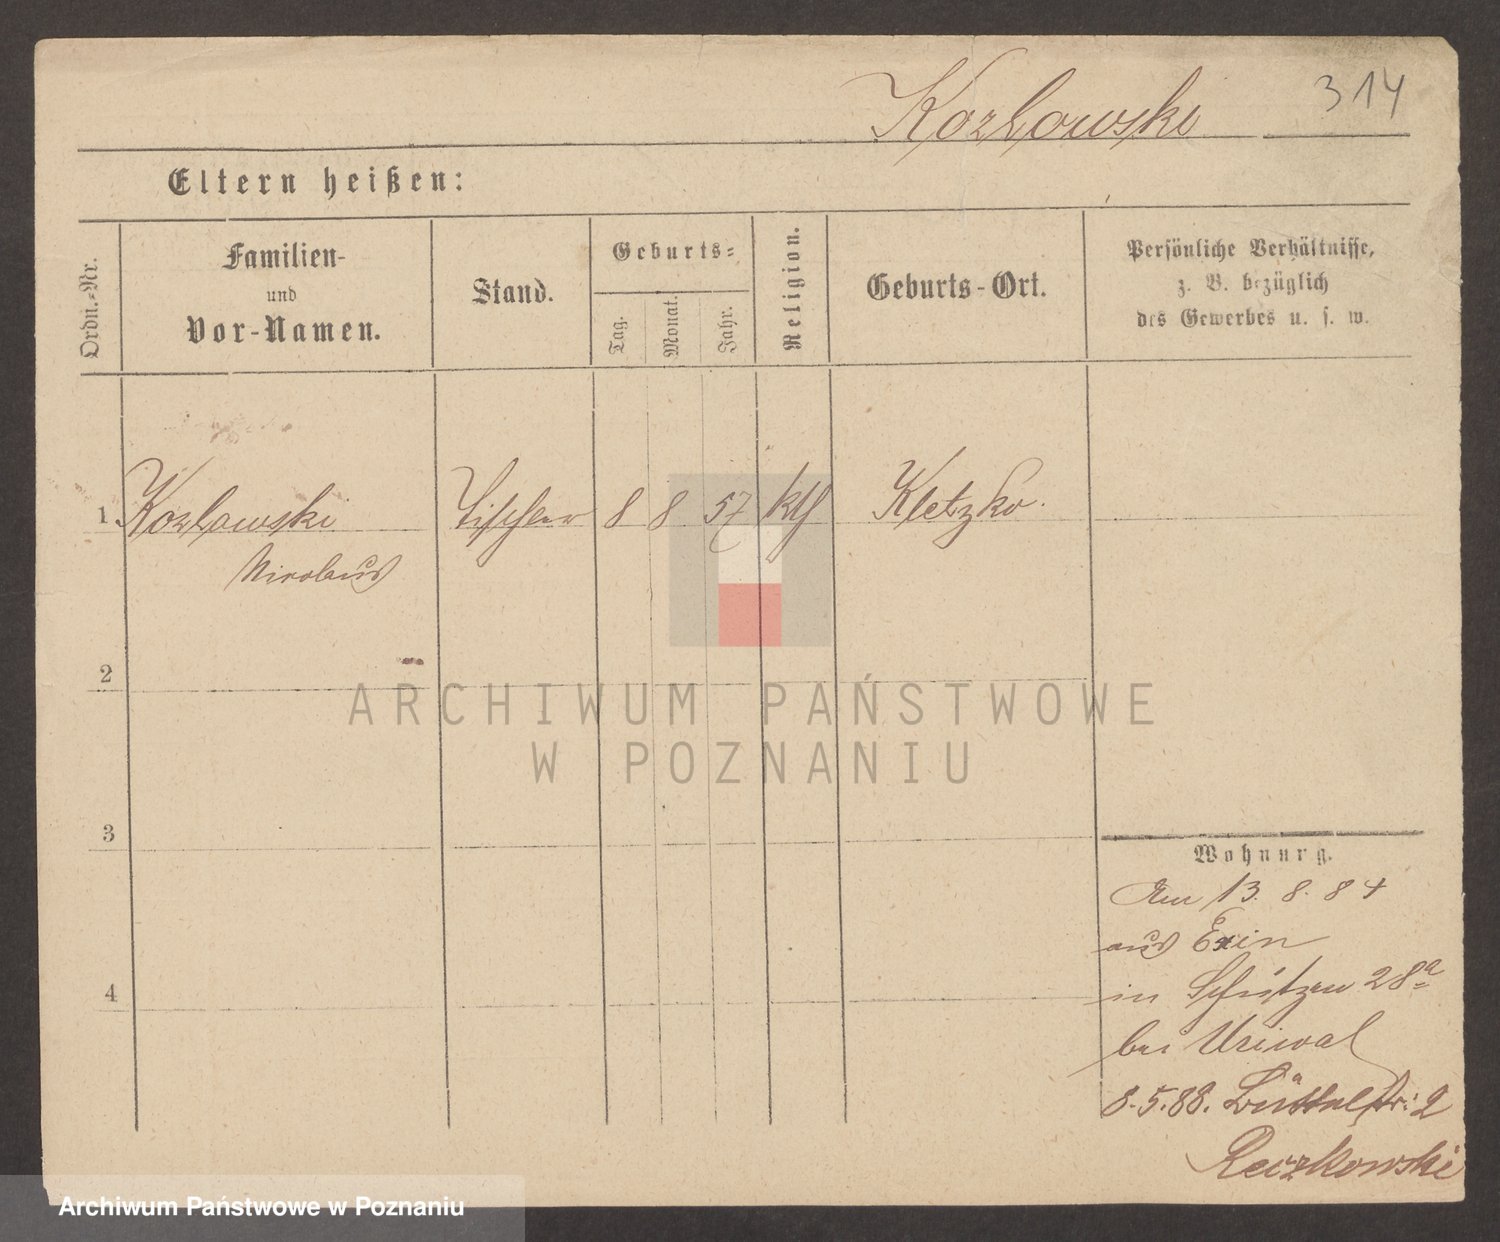 Kozłowski 314
Eltern heißen:
Ordn.-Nr.
Familien-
und
Vor-Namen.
Stand.
Geburts-
Tag.
Monat.
Jahr.
Religion.
Geburts-Ort.
Persönliche Verhältnisse,
z. B. bezüglich
des Gewerbes u. s. w.
1 Kozłowski Tischler 8 8 57 kth Kletzko.
Nicolaus
2
3
4
Wohnung.
Am 13. 8. 84
aus Exin
in Schützen 28a
bei
8.5.88. Büttelstr: 2
Reczkowski
ARCHIWUM PAŃSTWOWE
W POZNANIU
Archiwum Państwowe w Poznaniu